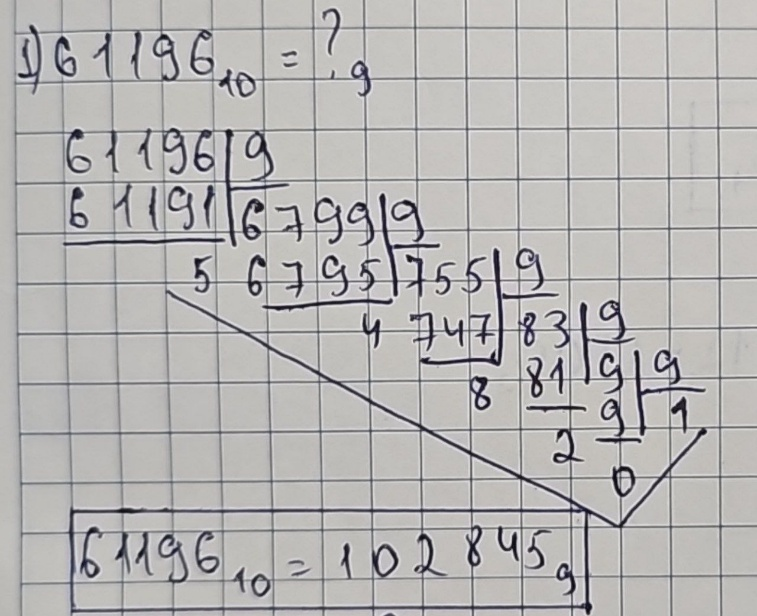 1) 61196₁₀ = ?₉
61196 | 9
61191 | 6799 | 9
5 6795 | 755 | 9
4 747 | 83 | 9
8 81 | 9 | 9
2 9 | 1
0
61196₁₀ = 102845₉